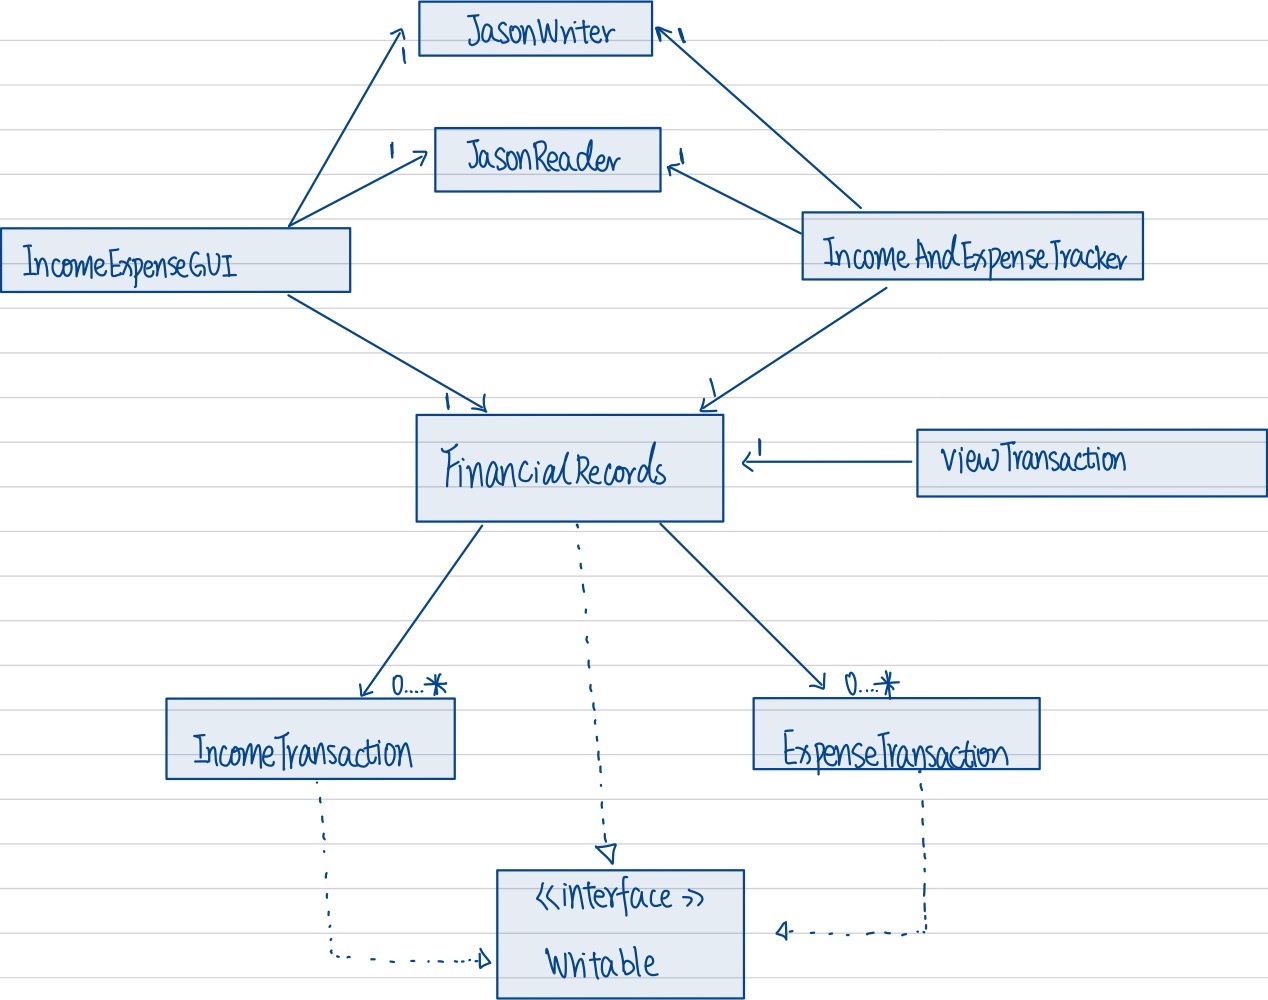 JasonWriter
1
1
JasonReader
1
1
IncomeExpenseGUI
IncomeAndExpenseTracker
1
1
FinancialRecords
1
ViewTransaction
0....*
0....*
IncomeTransaction
ExpenseTransaction
<<interface>>
Writable